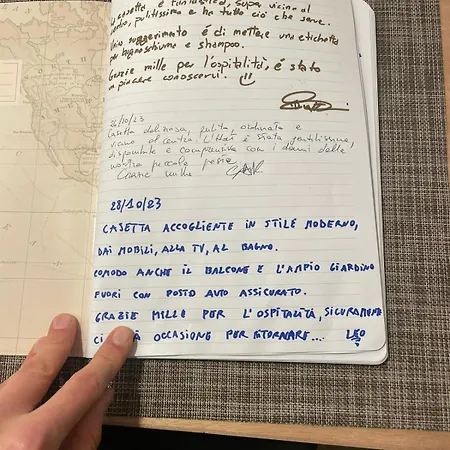 casetta è fantastica, super vicino al
pulitissima e ha tutto ciò che serve.
Unico suggerimento è di mettere una etichetta
per bagnoschiuma e shampoo.
Grazie mille per l'ospitalità, è stato
un piacere conoscervi.
26/10/23
Casetta deliziosa, pulita, ordinata e
vicino al centro. L'Host è stata gentilissima,
disponibile e comprensiva con i danni delle
nostre piccole pesti
Grazie mille
28/10/23
CASETTA ACCOGLIENTE IN STILE MODERNO,
DAI MOBILI, ALLA TV, AL BAGNO.
COMODO ANCHE IL BALCONE E L'AMPIO GIARDINO
FUORI CON POSTO AUTO ASSICURATO.
GRAZIE MILLE PER L'OSPITALITÀ, SICURAMENTE
CI OCCASIONE PER RITORNARE.... LEO